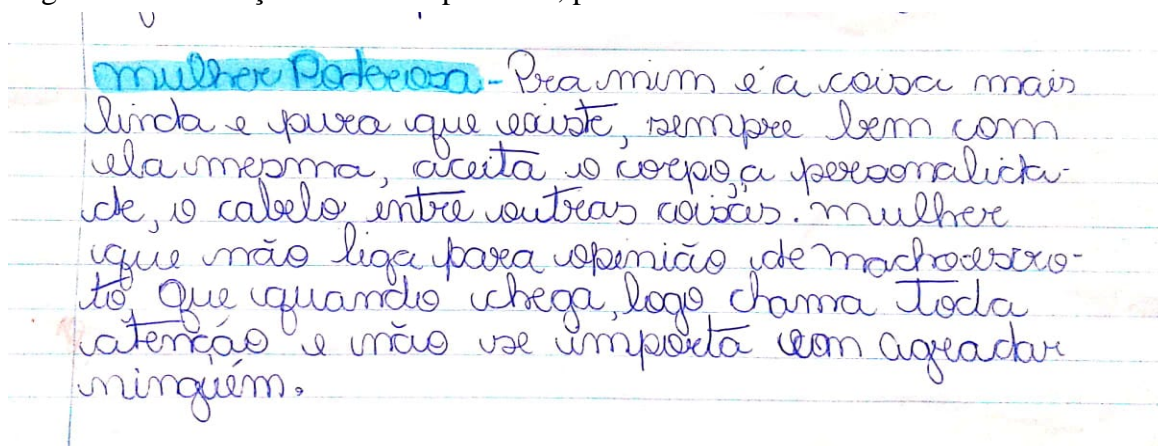 mulher Poderosa - Pra mim é a coisa mais
linda e pura que existe, sempre bem com
ela mesma, aceita o corpo, a personalida-
de, o cabelo, entre outras coisas. mulher
que não liga para opinião de macho escro-
to, que quando chega, logo chama toda
atenção e não se importa com agradar
ninguém.